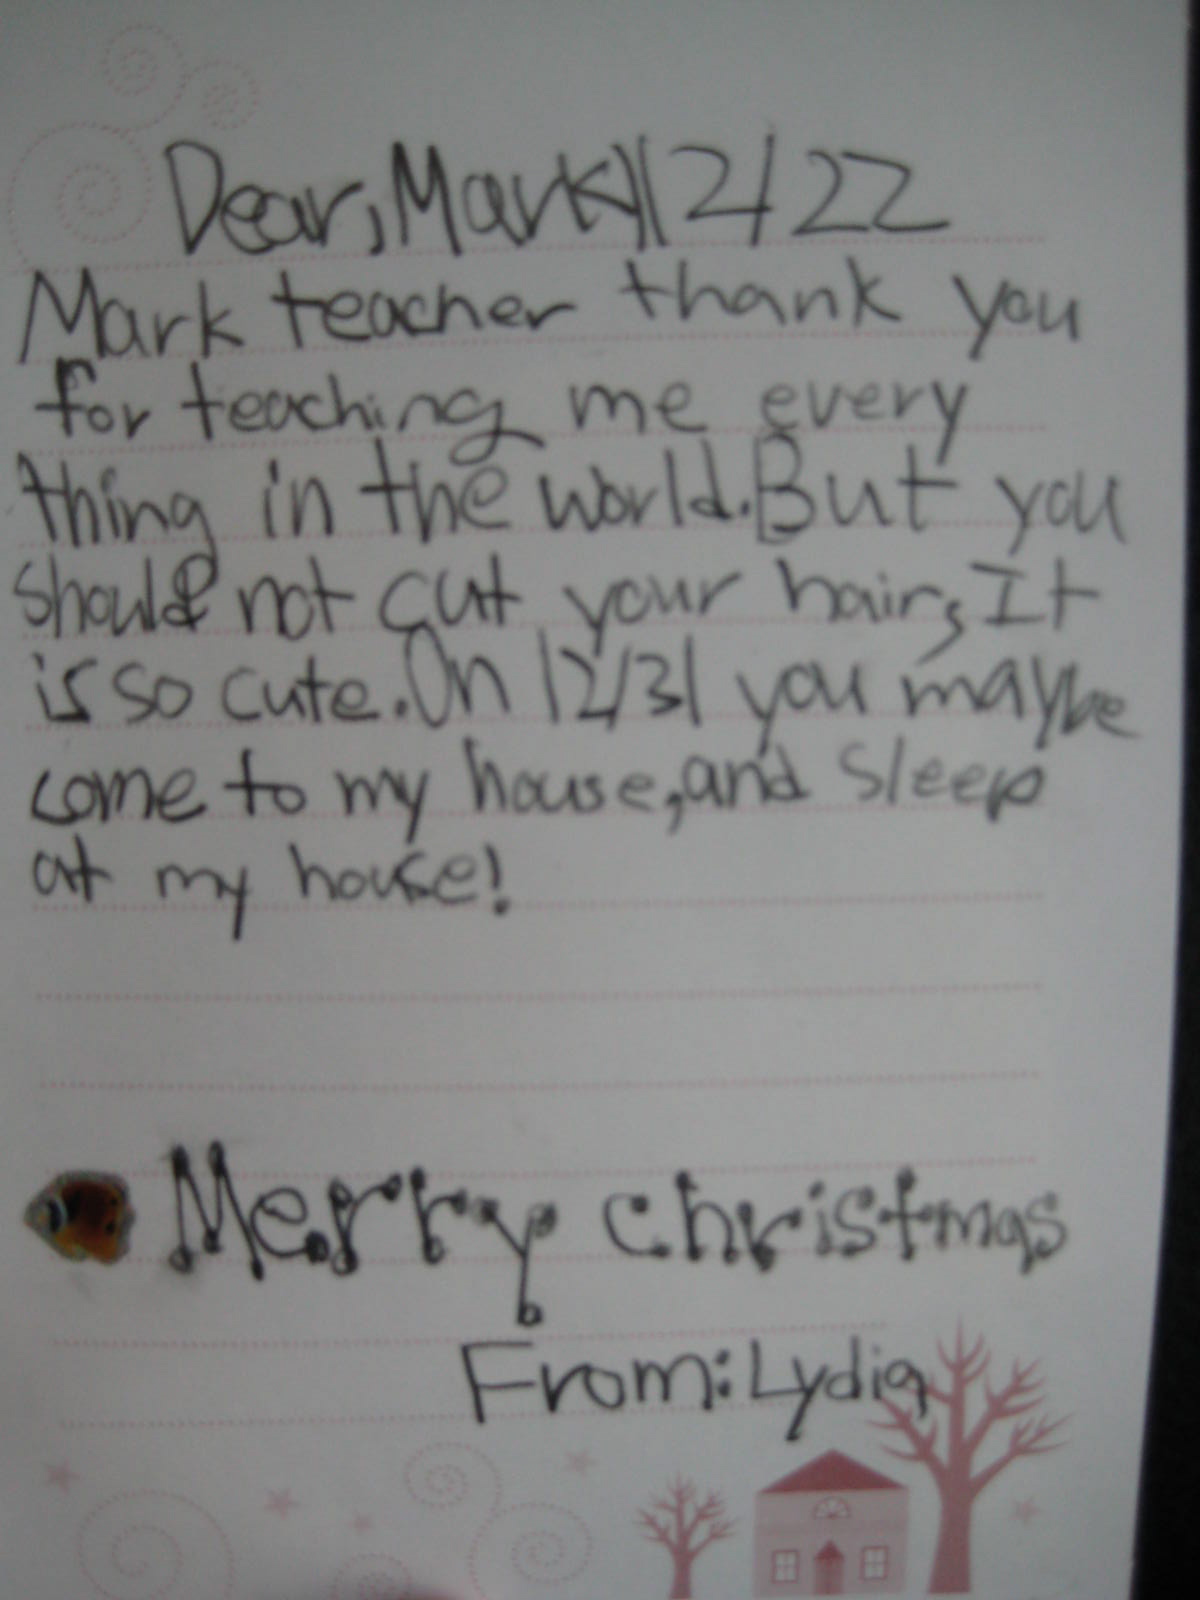 Dear, Mark 12/22
Mark teacher thank you
for teaching me every
thing in the world. But you
should not cut your hair, It
is so cute. On 12/31 you maybe
come to my house, and sleep
at my house!
Merry christmas
From: Lydia